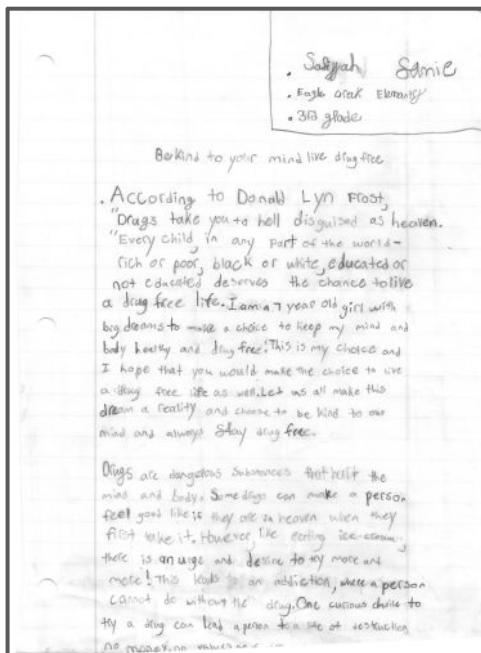 Safiyyah Samie
• Eagle Creek Elementry
• 3rd grade
Be kind to your mind live drug free
. According to Donald Lyn Frost,
"Drugs take you to hell disguised as heaven.
"Every child, in any part of the world-
rich or poor, black or white, educated or
not educated deserves the chance to live
a drug free life. I am a 7 year old girl with
big dreams to make a choice to keep my mind and
body healthy and drug free. This is my choice and
I hope that you would make the choice to live
a drug free life as well. Let us all make this
dream a reality and choose to be kind to our
mind and always stay drug free.
Drugs are dangerous substances that hurt the
mind and body. Some drugs can make a person
feel good like is they are in heaven when they
first take it. However, like eating ice-cream,
there is an urge and desire to try more and
more! This leads to an addiction, where a person
cannot do without the drug. One curious choice to
try a drug can lead a person to a life of destruction
no money, no values